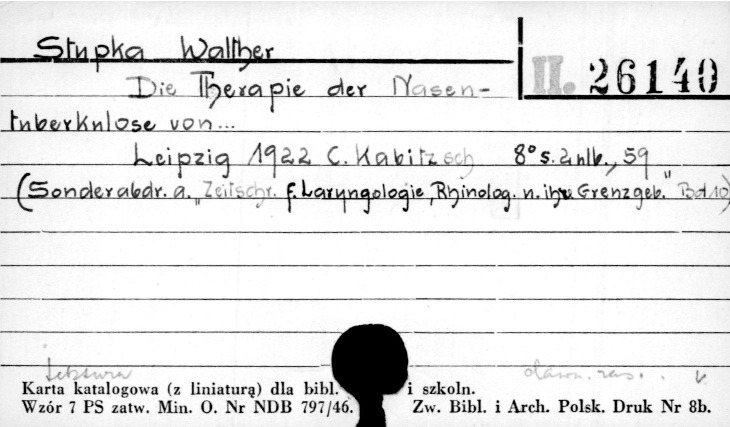 Stupka Walther
II. 26140
Die Therapie der Nasen-
tuberkulose von...
Leipzig 1922 C. Kabitzsch 8° s. 2 nlb., 59
(Sonderabdr. a. "Zeitschr. f. Laryngologie, Rhinolog. u. ihre Grenzgeb." Bd 10)
Karta katalogowa (z liniaturą) dla bibl. i szkoln.
Wzór 7 PS zatw. Min. O. Nr NDB 797/46. Zw. Bibl. i Arch. Polsk. Druk Nr 8b.